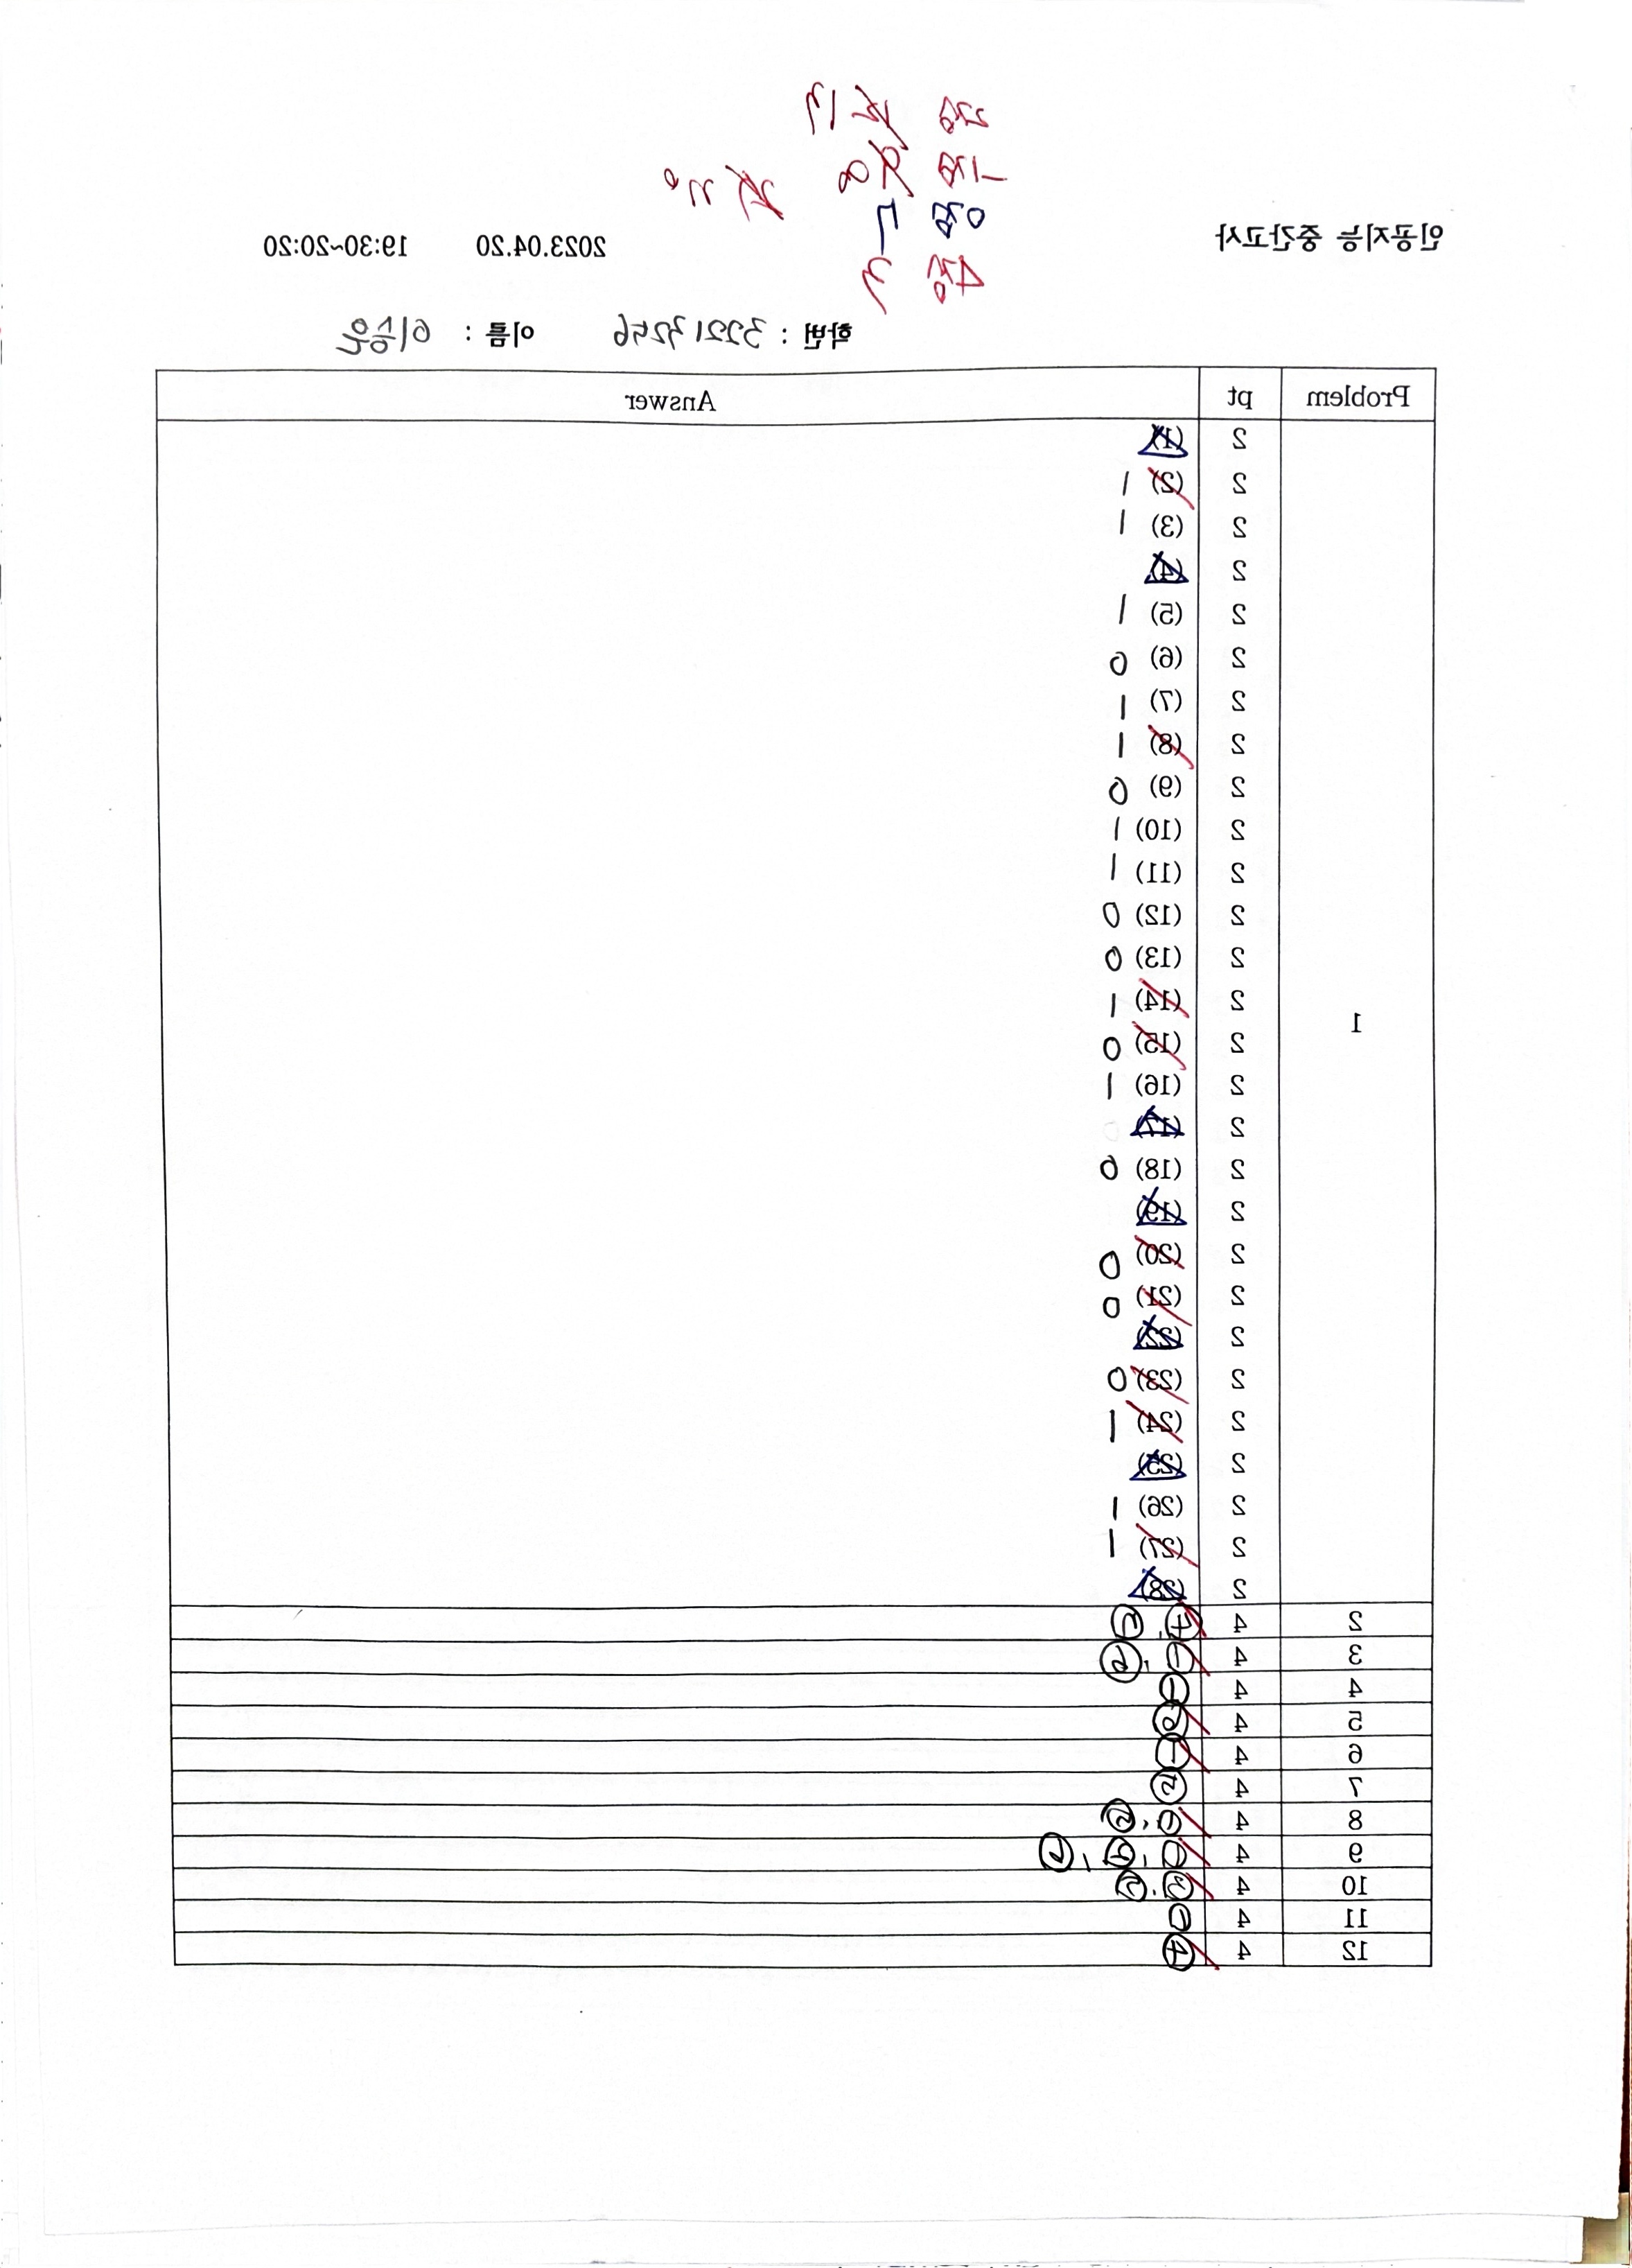 2점
-1점
0점
4점 3
인공지능 중간고사 2023.04.20 19:30~20:20
학번 : 32217256 이름 : 이승윤
Problem pt Answer
2 (1)
2 (2) 1
2 (3) 1
2 (4)
2 (5) 1
2 (6) 0
2 (7) 1
2 (8) 1
2 (9) 0
2 (10) 1
2 (11) 1
2 (12) 0
2 (13) 0
1 2 (14) 1
2 (15) 0
2 (16) 1
2 (17)
2 (18) 0
2 (19)
2 (20) 0
2 (21) 0
2 (22)
2 (23) 0
2 (24) 1
2 (25)
2 (26) 1
2 (27) 1
2 (28)
2 4
3 4
4 4 ①
5 4
6 4 ①
7 4 ②
8 4
9 4
10 4 ③, ②
11 4 ①
12 4 ④